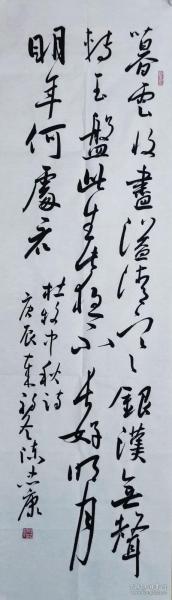 暮雲收盡溢清寒銀漢無聲
轉玉盤此生此夜不長好明月
明年何處看
杜牧中秋诗
庚辰年初冬陈志康